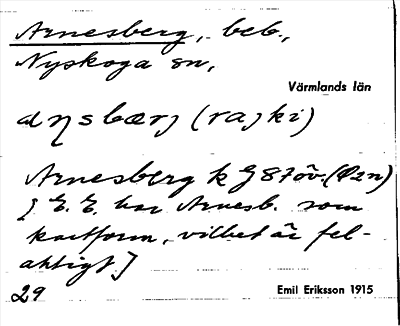 Arnesberg, beb.,
Nyskoga sn,
Värmlands län
aŋsbærj (rajki)
Arnesberg k G 87öv. (Ø2n)
[E. E. har Arnesb. som
kartform, vilket är fel-
aktigt]
29
Emil Eriksson 1915